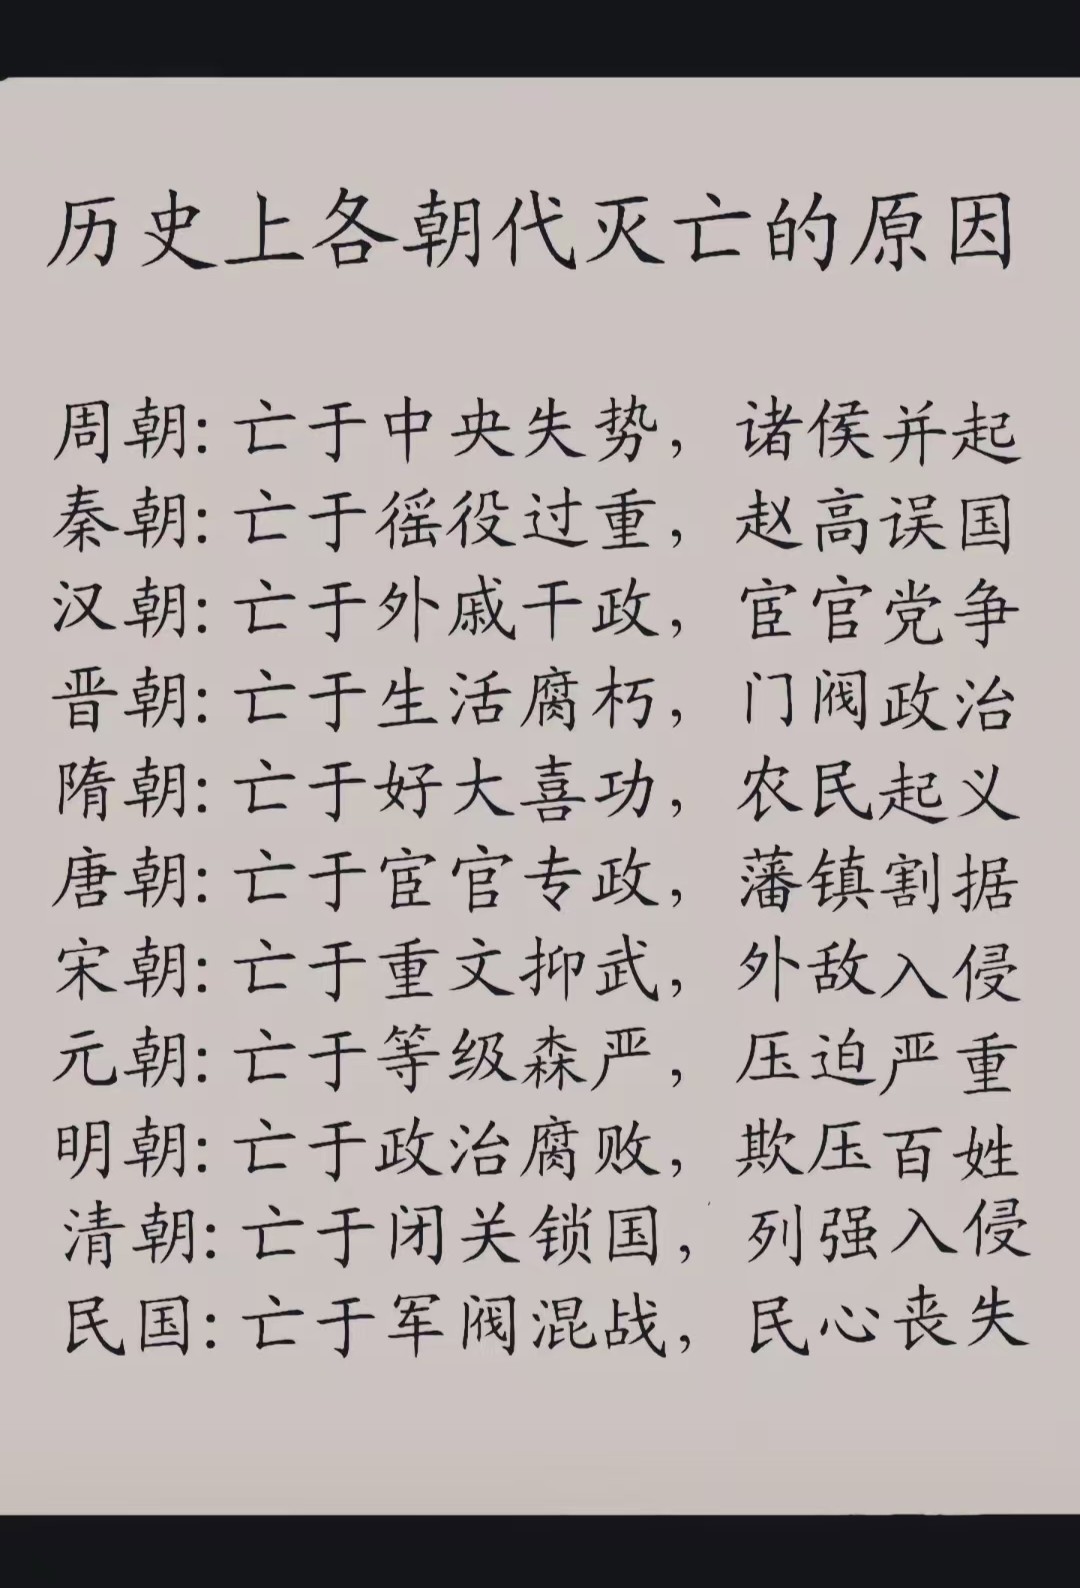 历史上各朝代灭亡的原因
周朝：亡于中央失势，诸侯并起
秦朝：亡于徭役过重，赵高误国
汉朝：亡于外戚干政，宦官党争
晋朝：亡于生活腐朽，门阀政治
隋朝：亡于好大喜功，农民起义
唐朝：亡于宦官专政，藩镇割据
宋朝：亡于重文抑武，外敌入侵
元朝：亡于等级森严，压迫严重
明朝：亡于政治腐败，欺压百姓
清朝：亡于闭关锁国，列强入侵
民国：亡于军阀混战，民心丧失